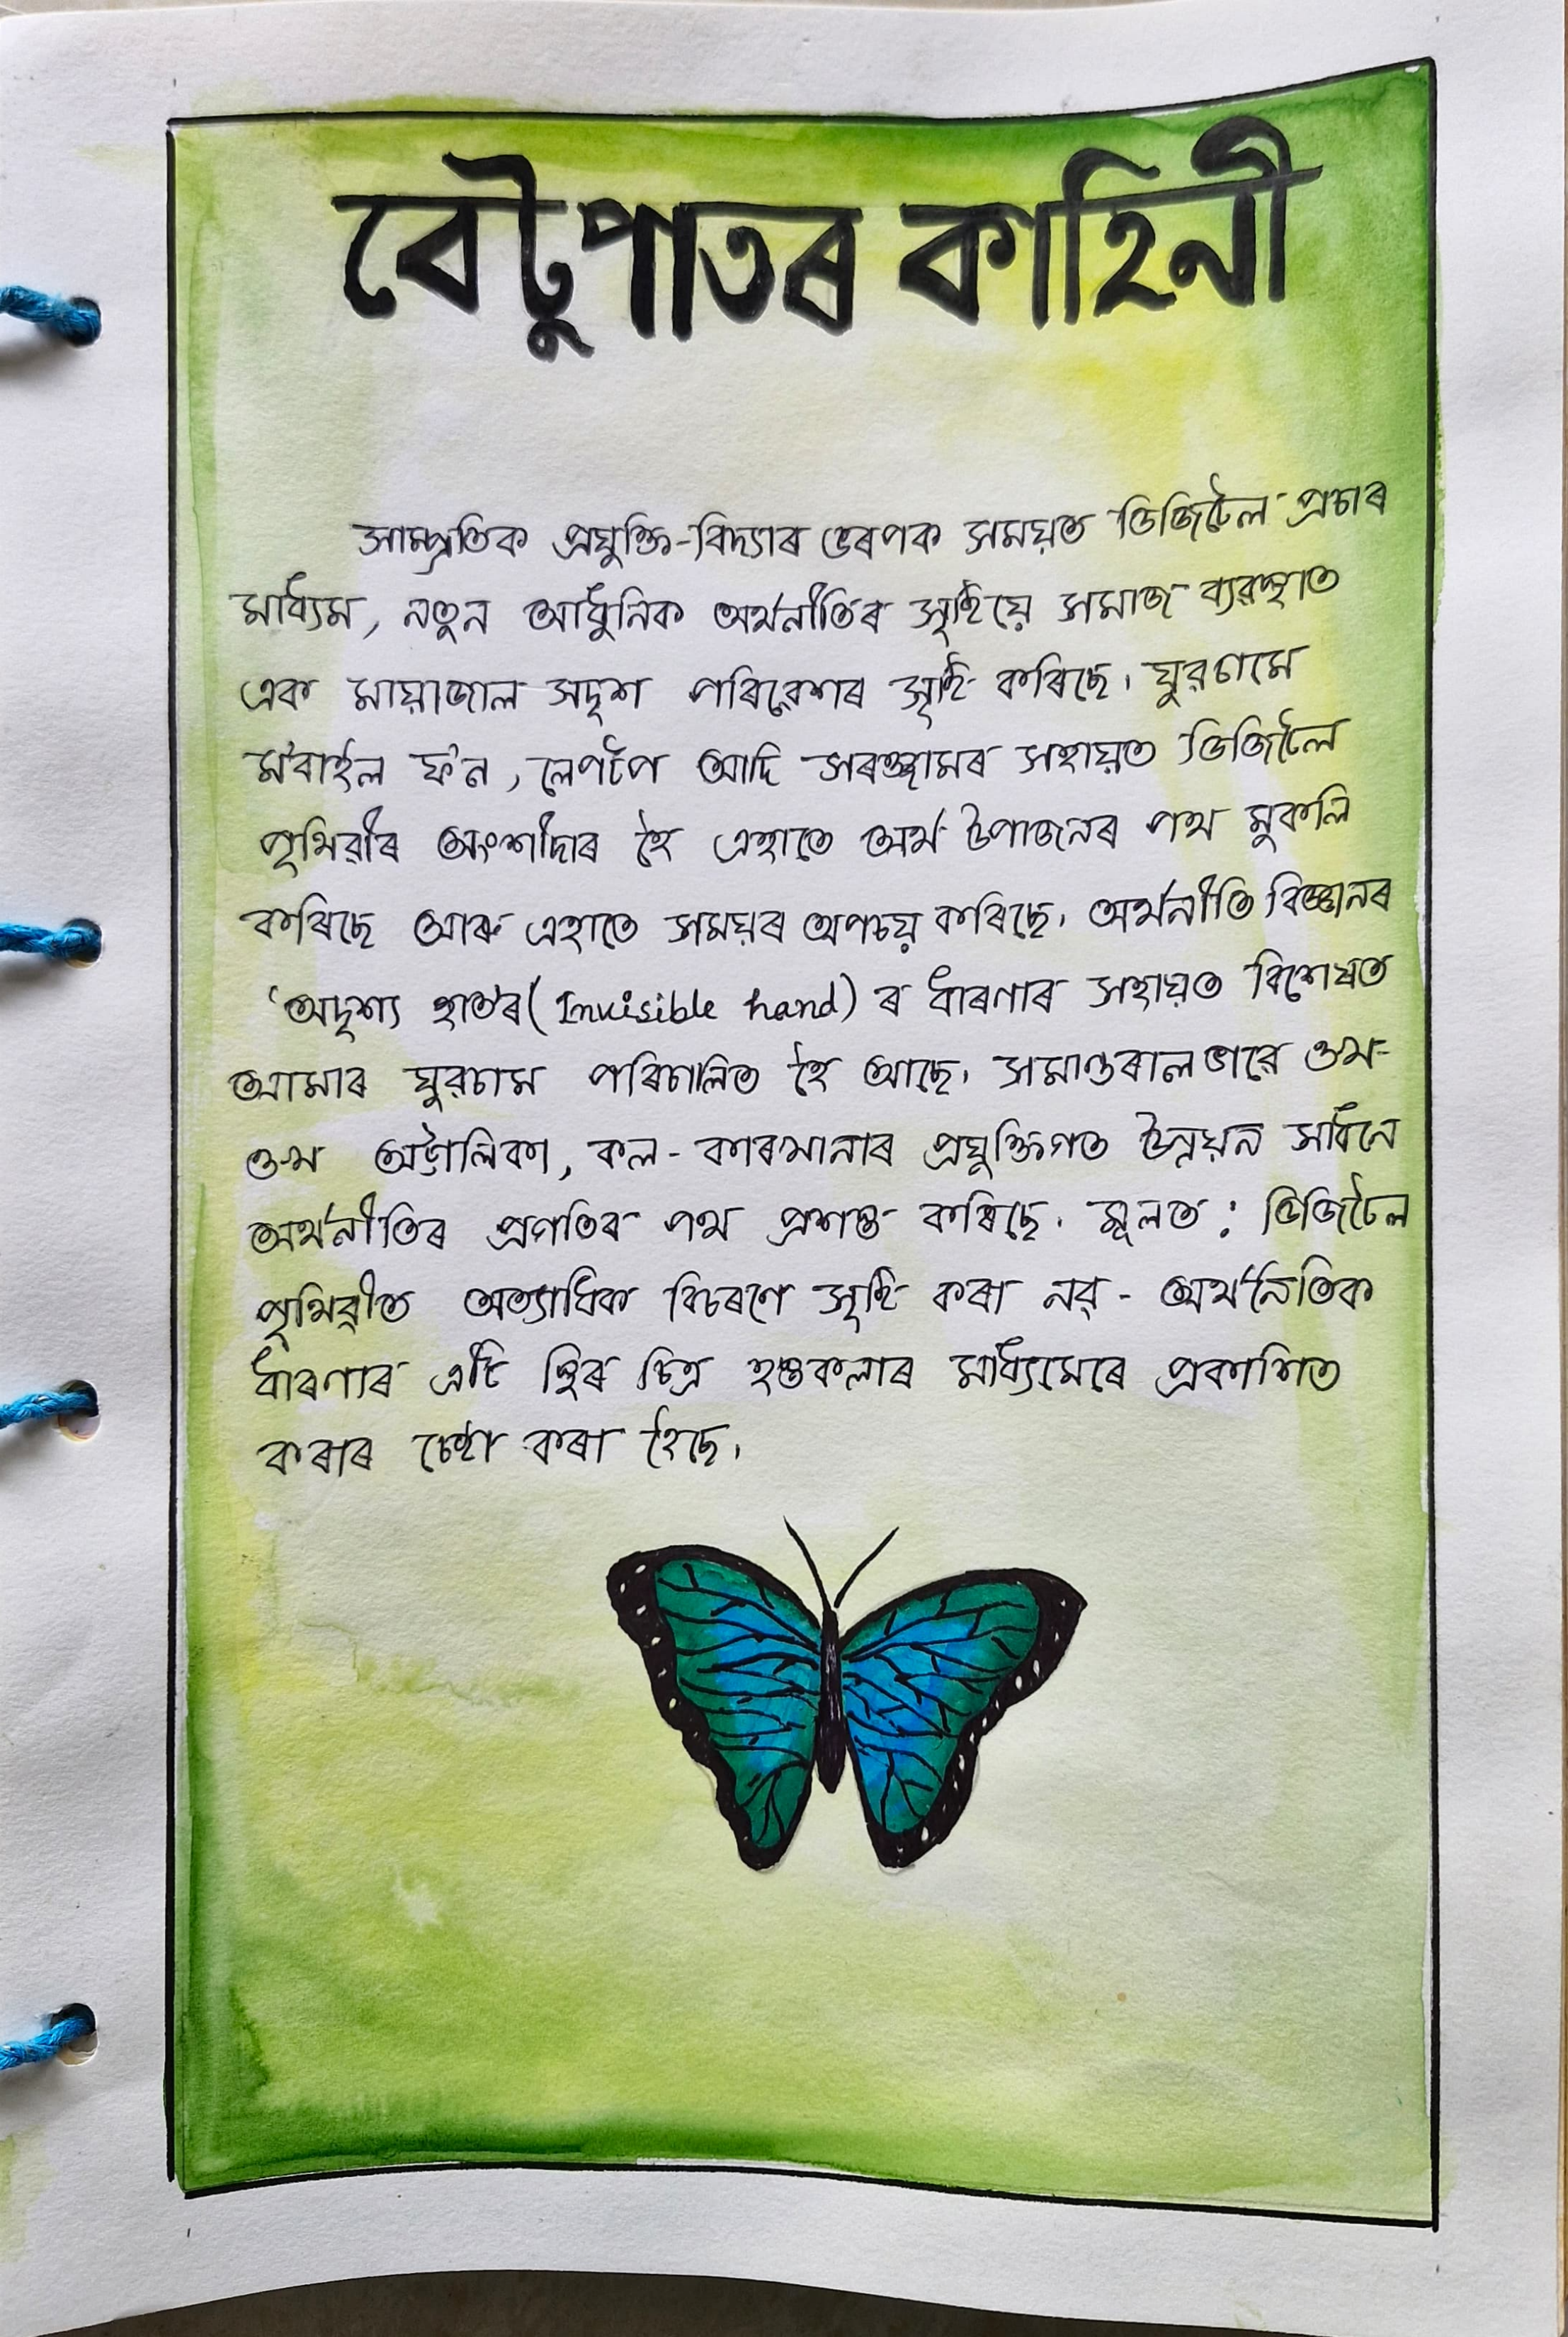 বেটুপাতৰ কাহিনী
সাম্প্ৰতিক প্ৰযুক্তি-বিদ্যাৰ ভৰপক সময়ত ডিজিটেল প্ৰচাৰ
মাধ্যম, নতুন আধুনিক অৰ্থনীতিৰ সৃষ্টিয়ে সমাজ ব্যৱস্থাত
এক মায়াজাল সদৃশ পৰিৱেশৰ সৃষ্টি কৰিছে। যুৱচামে
ম'বাইল ফ'ন, লেপটপ আদি সৰঞ্জামৰ সহায়ত ডিজিটেল
পৃথিৱীৰ অংশীদাৰ হৈ এহাতে অৰ্থ উপাৰ্জনৰ পথ মুকলি
কৰিছে আৰু এহাতে সময়ৰ অপচয় কৰিছে। অৰ্থনীতি বিজ্ঞানৰ
'অদৃশ্য হাত'ৰ (Invisible hand) ৰ ধাৰণাৰ সহায়ত বিশেষত
আমাৰ যুৱচাম পৰিচালিত হৈ আছে। সমান্তৰালভাৱে ওখ-
ওখ অট্টালিকা, কল-কাৰখানাৰ প্ৰযুক্তিগত উন্নয়ন সাধনে
অৰ্থনীতিৰ প্ৰগতিৰ পথ প্ৰশস্ত কৰিছে। মূলত: ডিজিটেল
পৃথিৱীত অত্যাধিক বিচৰণে সৃষ্টি কৰা নৱ - অৰ্থনৈতিক
ধাৰণাৰ এটি স্থিৰ চিত্ৰ হস্তকলাৰ মাধ্যমেৰে প্ৰকাশিত
কৰাৰ চেষ্টা কৰা হৈছে।